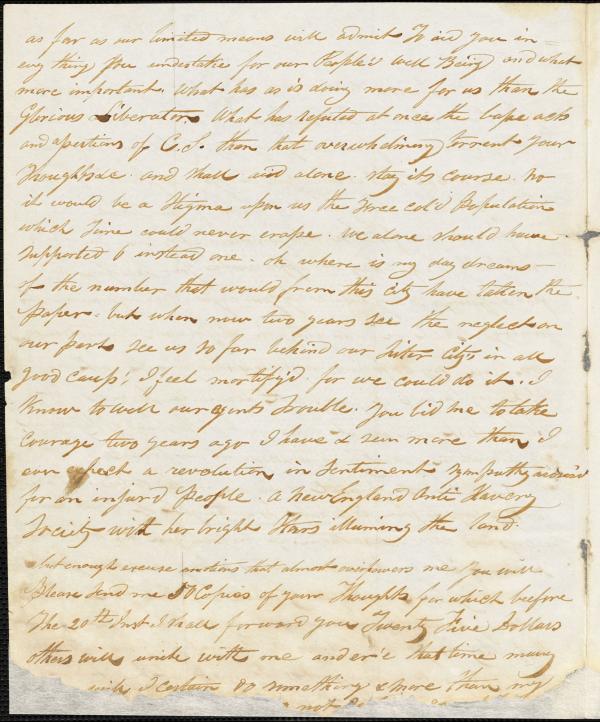 as far as our limited means will admit To aid you in
evry thing you undertake for our People's Well Being and what
more important. What has as is doing more for us than the
Glorious Liberator. What has refuted at once the base acts
and apertions of C.S. than that overwhelming torrent your
Thoughts &c. and shall aid alone. stay its course. no
it would be a Stigma upon us the Free cold Population
which Time could never erase. We alone should have
supported 6 instead one. oh where is my day dreams
of the number that would from this city have taken the
Paper. but when now two years see the neglect on
our part see us so far behind our sister city's in all
good causes! I feel mortify'd. for we could do it. I
Know to well our agents trouble. You bid me to take
courage two years ago I have & seen more than I
ever expect a revolution in Sentiment sympathy
for an injurd People. A New England Anti Slavery
Society with her bright Stars illuming the land.
but enough excuse emotions that almost overpowers me you will
Please send me 50 Copies of your Thoughts for which before
The 20th Inst I shall forward you Twenty Five Dollars
others will unite with me and er'e that time many
will I certain do something & more than my
not